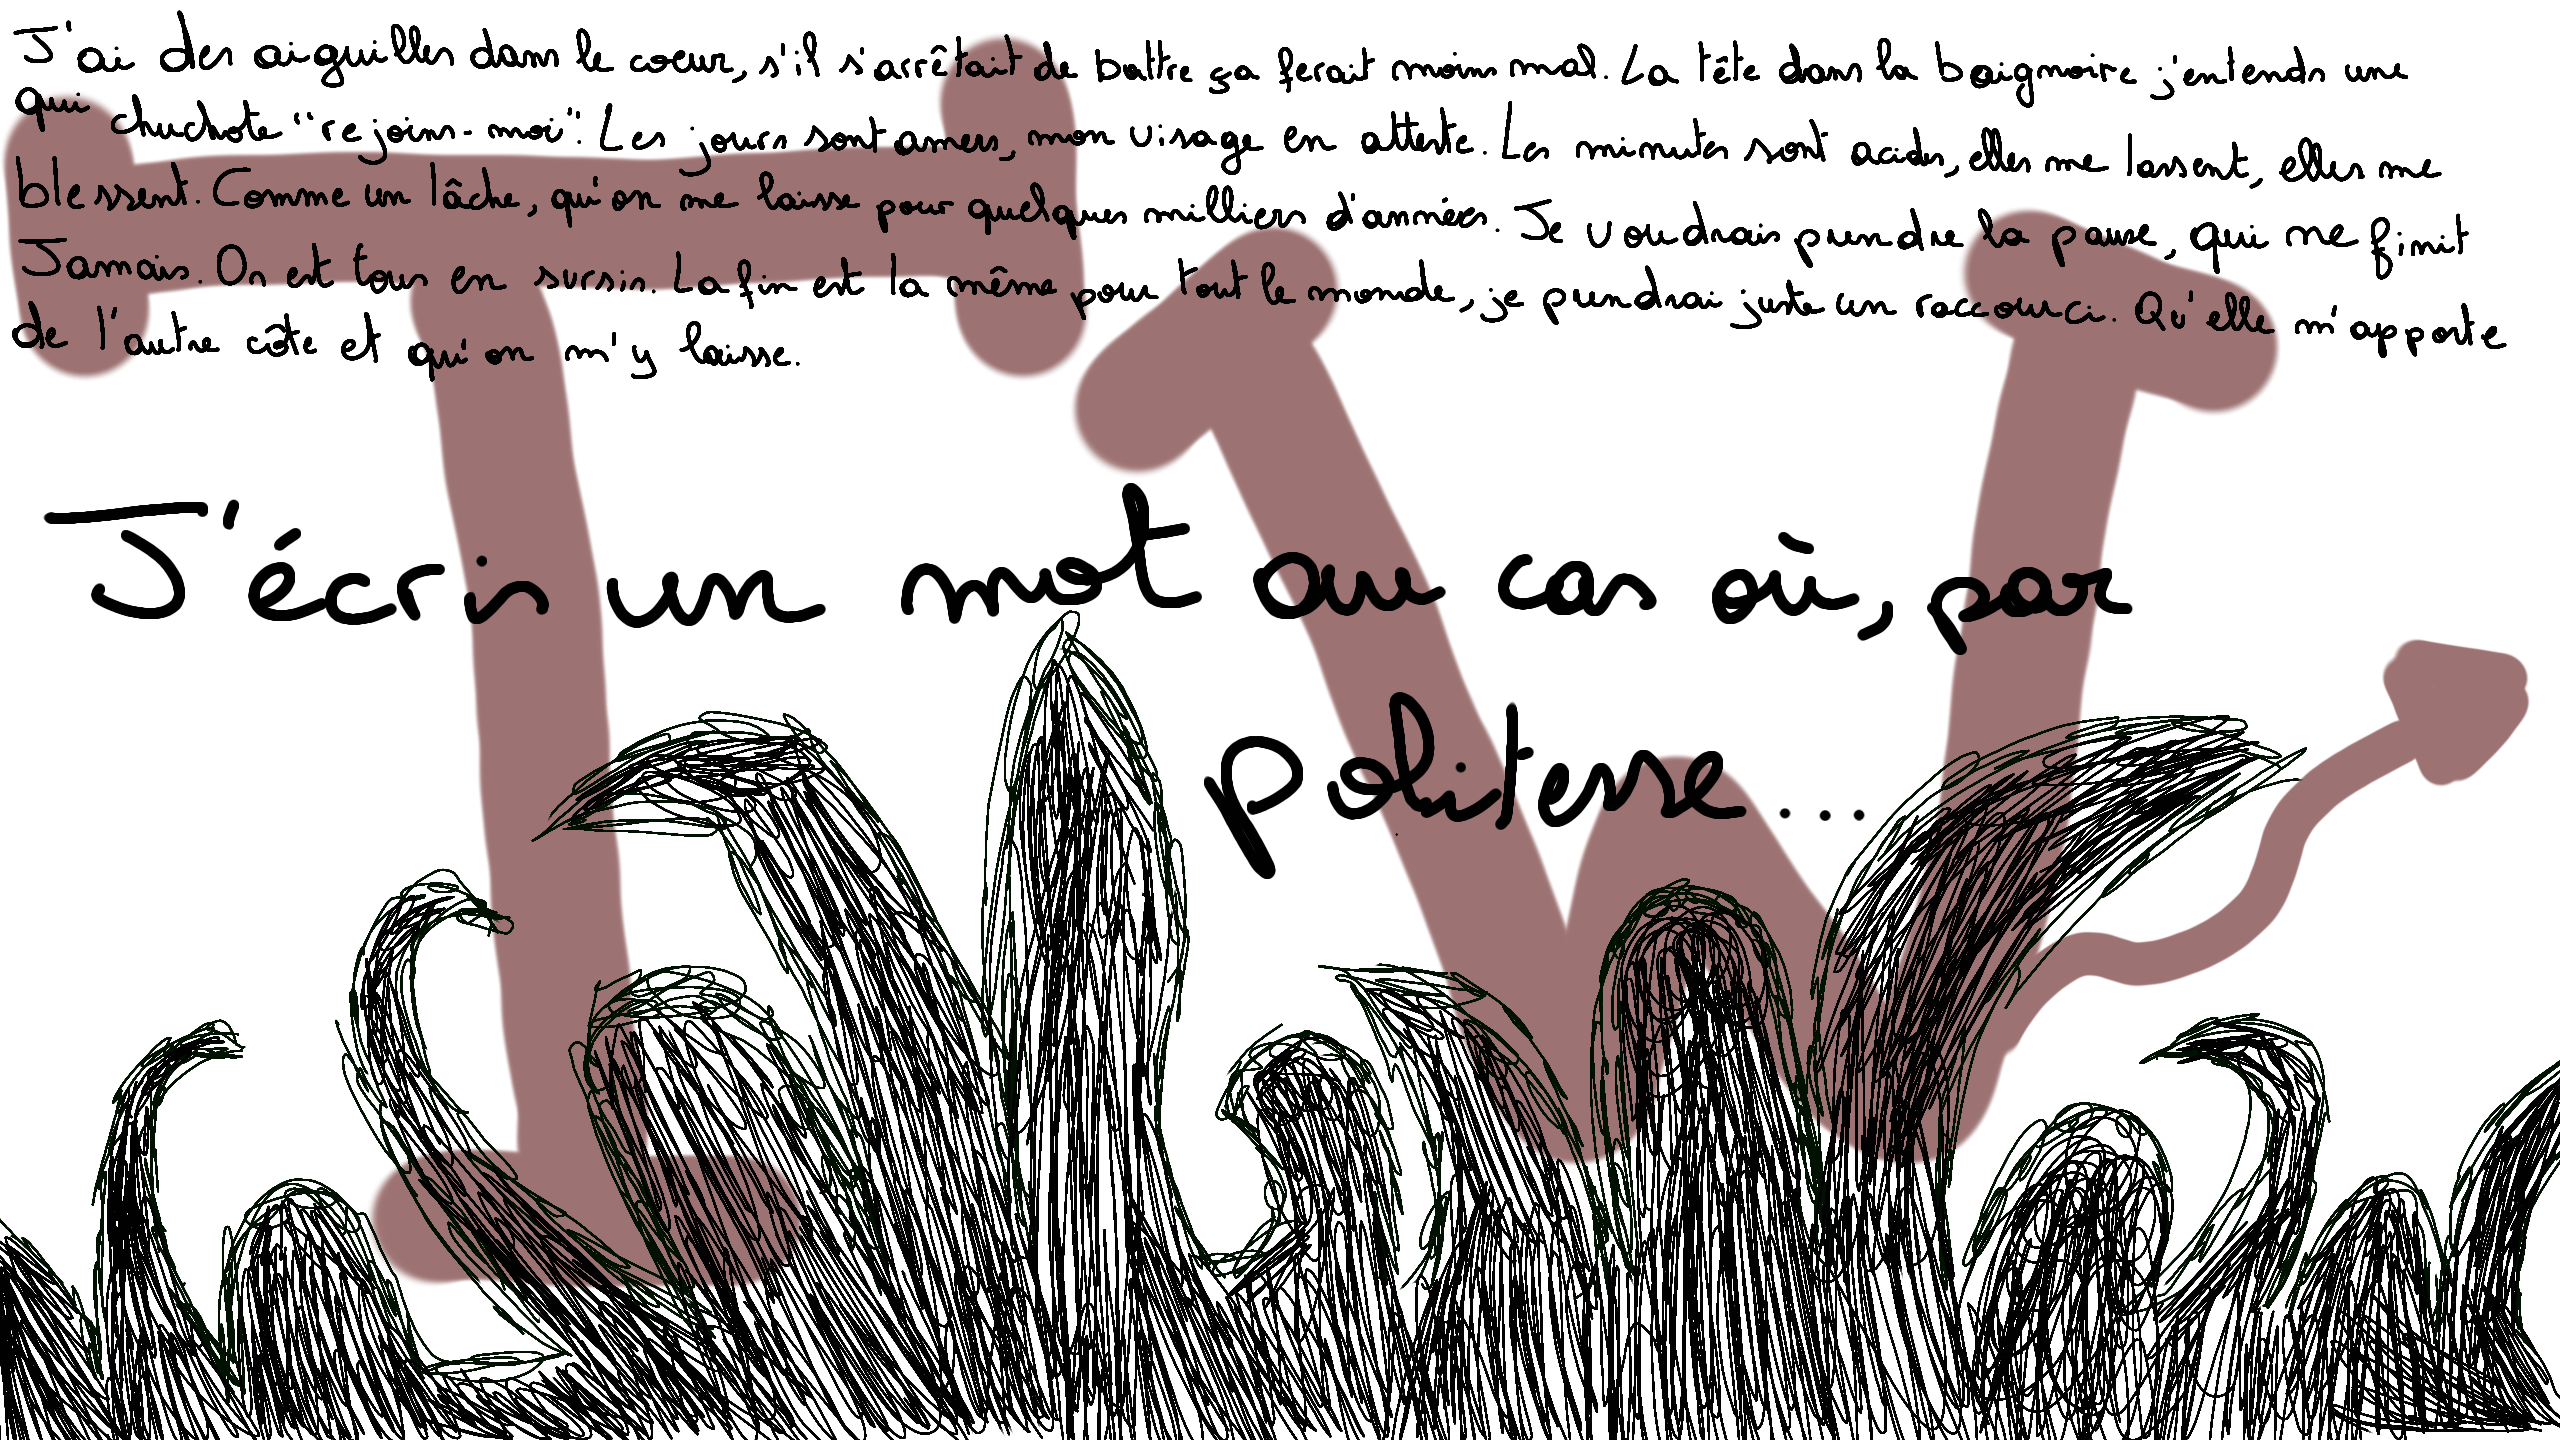 J'ai des aiguilles dans le coeur, s'il s'arrêtait de battre ça ferait moins mal. La tête dans la baignoire j'entends une
qui chuchote "rejoins-moi". Les jours sont amers, mon visage en atteste. Les minutes sont acides, elles me lassent, elles me
blessent. Comme un lâche, qu'on me laisse pour quelques milliers d'années. Je voudrais prendre la pause, qui ne finit
Jamais. On est tous en sursis. La fin est la même pour tout le monde, je prendrai juste un raccourci. Qu'elle m'apporte
de l'autre côte et qu'on m'y laisse.
J'écris un mot au cas où, par
politesse...